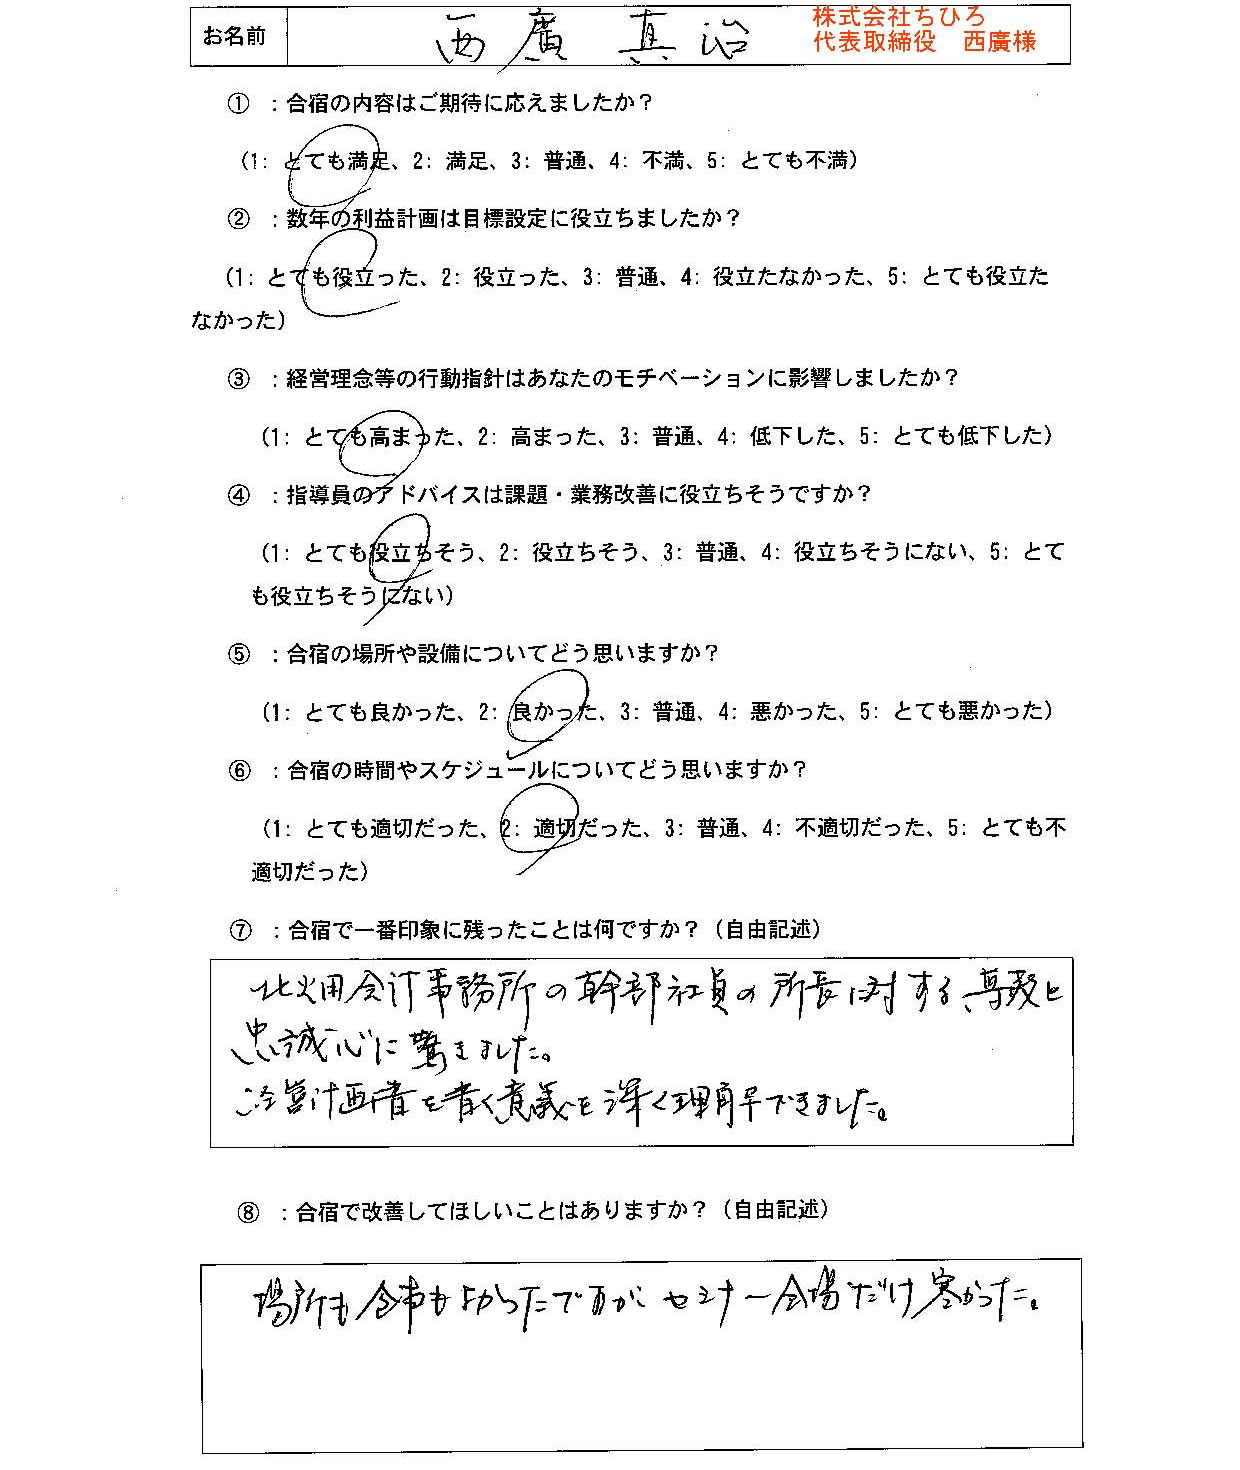 お名前 西廣 真治 株式会社ちひろ
代表取締役 西廣様
① :合宿の内容はご期待に応えましたか?
(1: とても満足、2: 満足、3: 普通、4: 不満、5: とても不満)
② :数年の利益計画は目標設定に役立ちましたか?
(1: とても役立った、2: 役立った、3: 普通、4: 役立たなかった、5: とても役立た
なかった)
③ :経営理念等の行動指針はあなたのモチベーションに影響しましたか?
(1: とても高まった、2: 高まった、3: 普通、4: 低下した、5: とても低下した)
④ :指導員のアドバイスは課題・業務改善に役立ちそうですか?
(1: とても役立ちそう、2: 役立ちそう、3: 普通、4: 役立ちそうにない、5: とて
も役立ちそうにない)
⑤ :合宿の場所や設備についてどう思いますか?
(1: とても良かった、2: 良かった、3: 普通、4: 悪かった、5: とても悪かった)
⑥ :合宿の時間やスケジュールについてどう思いますか?
(1: とても適切だった、2: 適切だった、3: 普通、4: 不適切だった、5: とても不
適切だった)
⑦ :合宿で一番印象に残ったことは何ですか?(自由記述)
北畑会計事務所の幹部社員の所長に対する、尊敬と
忠誠心に驚きました。
経営計画書を書く意義を深く理解できました。
⑧ :合宿で改善してほしいことはありますか?(自由記述)
場所も食事もよかったですが セミナー会場だけ寒かった。